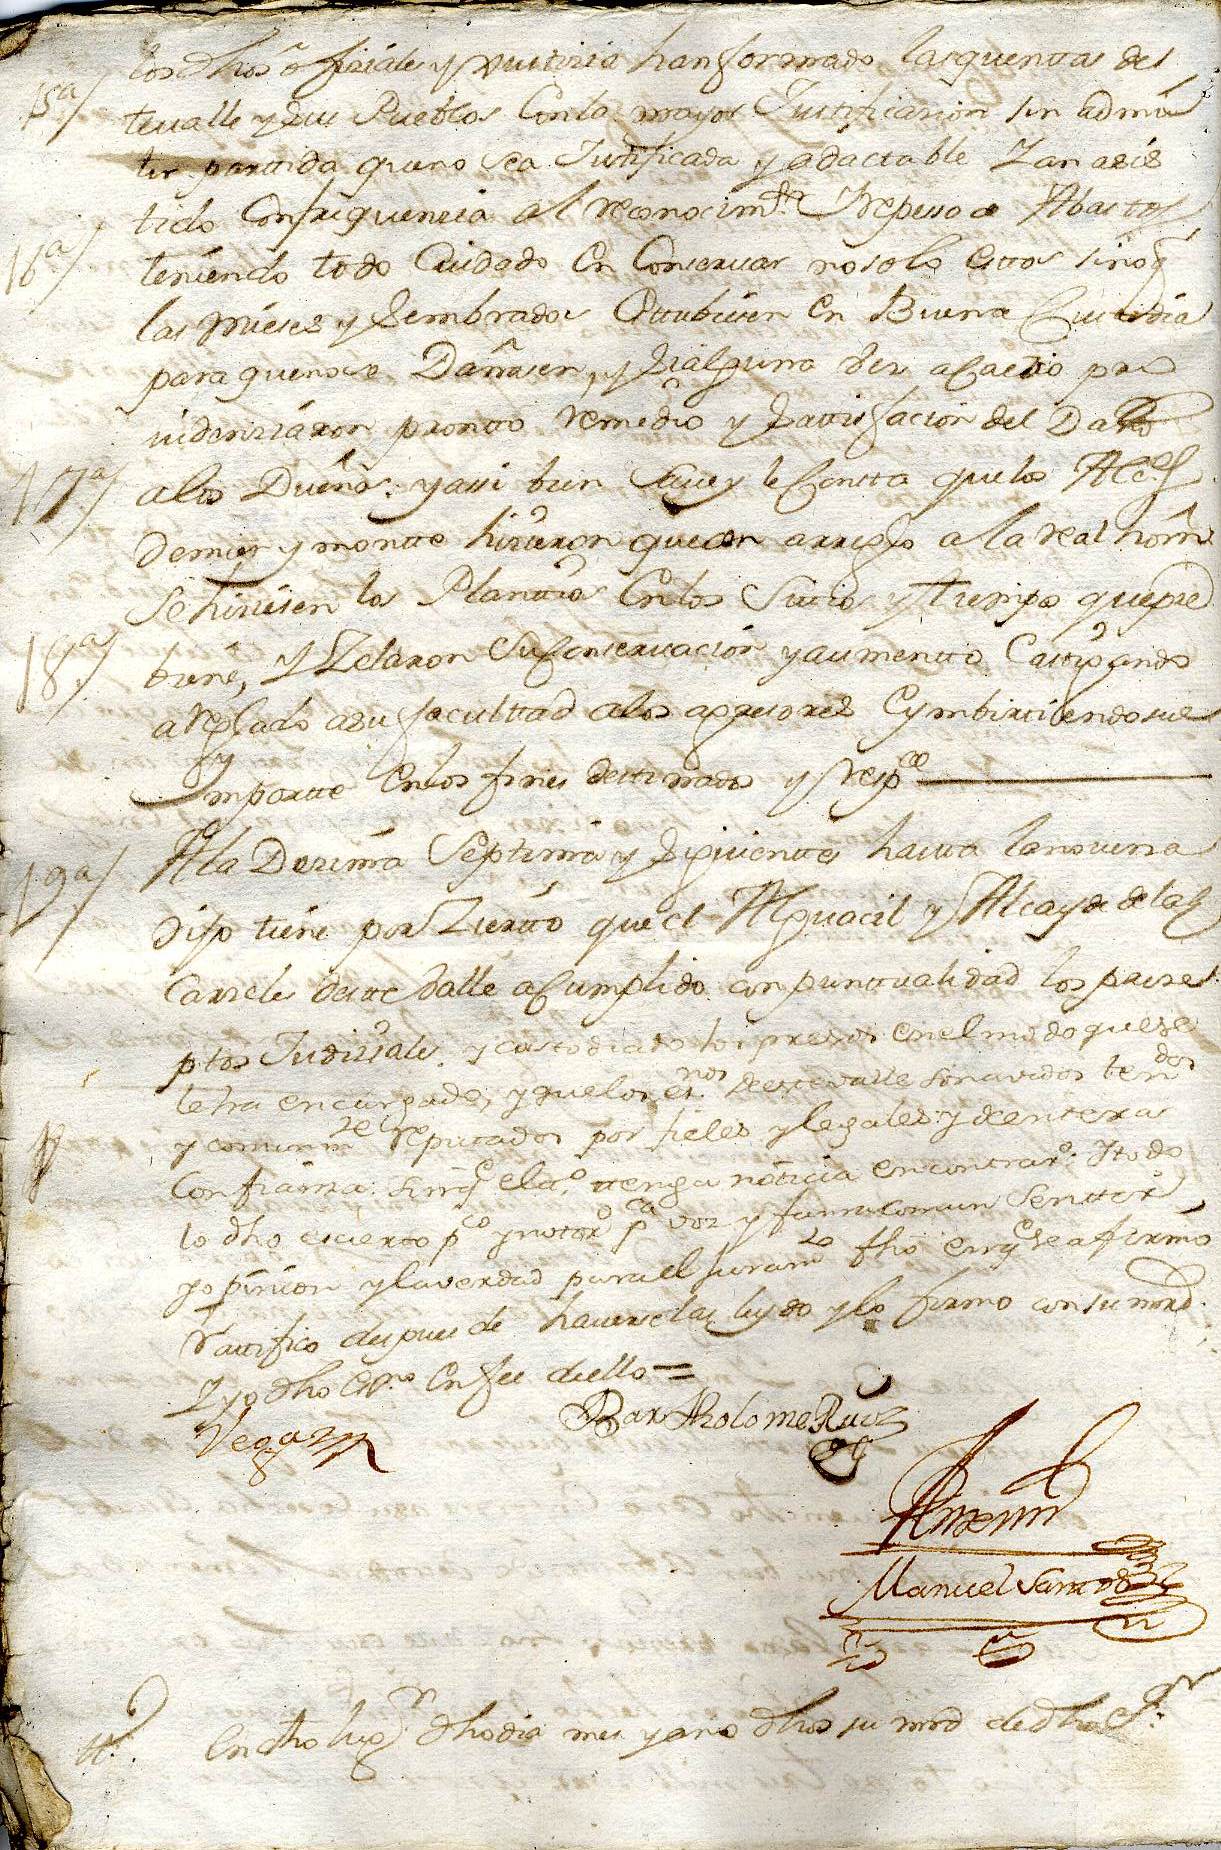 los dhos ofiziales y Justizia han formado las quentas des
15ª/ te valle y sus Pueblos Con la mayor Justificazion sin admi
tir partida que no sea Justificada y adactable Y an asis
tido Con frequencia al reconocimto y repesso de Abastos
16ª/ teniendo todo Cuidado En Conservar no solo Estos sino q
las mieses y sembrados Estubiesen En Buena Custodia
para que no se Dañasen, y si alguna vez acaecio pro
videnziaron prontto remedio y sattisfacion del Daño
17ª/ a los Dueños; y assi bien save y le Constta que los Alces
de mier y montte hizieron que con arreglo a la real hordn
se hiziesen los Planttios En los Sitios y tiempo que pre
18ª/ biene, Y Zelaron su Conservazion y aumentto Castigando
arreglado a su facultad a los agresores E ymbirtiendo sus
Ymportte En los fines desttinados y respce
19ª/ A la Dezima Septima y siguienttes hasta la novena
Dijo tiene por Ziertto que el Alguacil y Alcayde de las
Carzeles deste Valle a Cumplido con punttualidad los prese
ptos Judiziales. y custodiado los presos en el modo que se
le ha encargado, y que los esnos de este valle son avidos tendos
y comunmte reputados por fieles y legales y de entera
Confianza. sin q el to. ttenga noticia en contraro. Y todo
lo dho es cierto pco y notoro pca voz y fama comun Senttir
y opinion y la verdad para el Juramto fho en q se afirmo
rattifico despues de haversela leydo y lo firmo con su mrd.
Y yo dho Essno En fee de ello =
Vega
Bartholome Ruiz
Antemi
Manuel
tt.º En dho lugr dho dia mes y año dhos su mrd de dho Sr